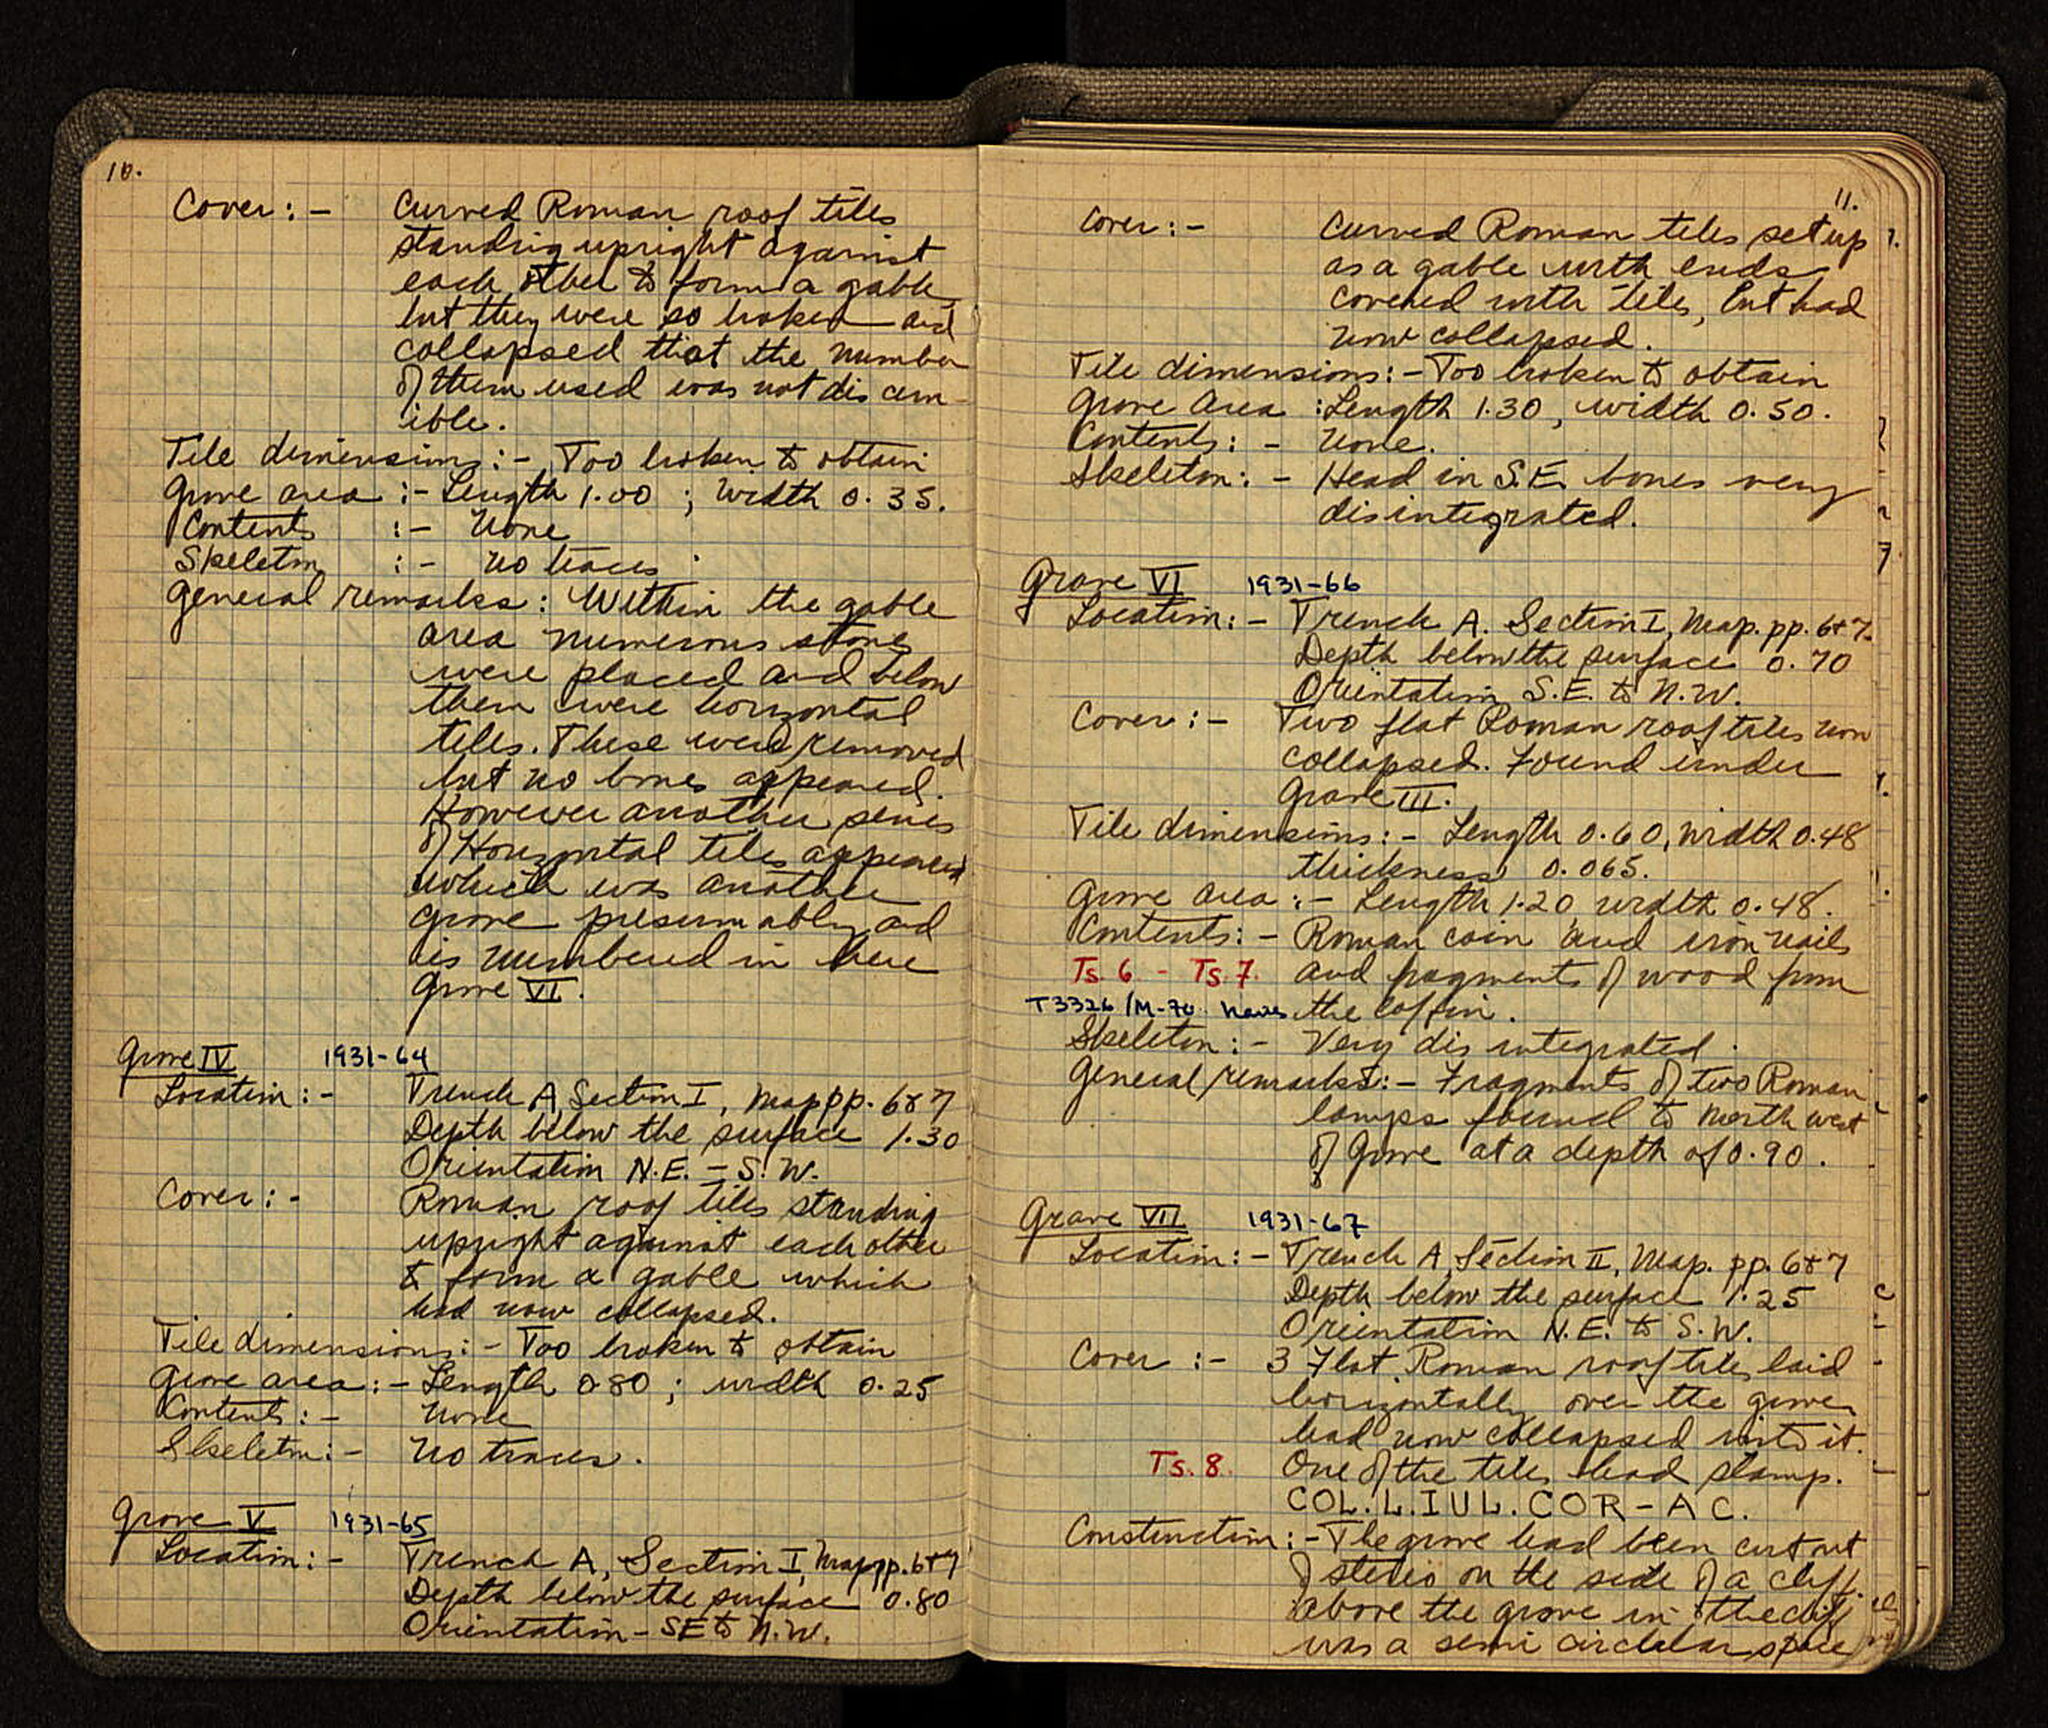 10.
Cover : - Curved Roman roof tiles
standing upright against
each other to form a gable
but they were so broken and
collapsed that the number
of them used was not discern-
ible.
Tile dimensions : - Too broken to obtain
Grave area : - Length 1.00 ; Width 0.35.
Contents : - None
Skeleton : - No traces
General remarks : Within the gable
area numerous stones
were placed and below
them were horizontal
tiles. These were removed
but no bones appeared.
However another series
of Horizontal tiles appeared
which was another
grave presumably and
is numbered in here
Grave VI.
Grave IV 1931-64
Location : - Trench A, Section I, Map pp. 6 & 7
Depth below the surface 1.30
Orientation N.E. - S.W.
Cover : - Roman roof tiles standing
upright against each other
to form a gable which
had now collapsed.
Tile dimensions : - Too broken to obtain
Grave area : - Length 0.80 ; width 0.25
Contents : - None
Skeleton : - No traces.
Grave V 1931-65
Location : - Trench A, Section I, Map pp. 6 & 7
Depth below the surface 0.80
Orientation - SE to N.W.
11.
Cover : - Curved Roman tiles set up
as a gable with ends
covered with tiles, but had
now collapsed.
Tile dimensions : - Too broken to obtain
Grave Area : Length 1.30, width 0.50.
Contents : - None.
Skeleton : - Head in S.E. bones very
disintegrated.
Grave VI 1931-66
Location : - Trench A. Section I, Map. pp. 6 & 7.
Depth below the surface 0.70
Orientation S.E. to N.W.
Cover : - Two flat Roman roof tiles now
collapsed. Found under
Grave III.
Tile dimensions : - Length 0.60, Width 0.48
thickness 0.065.
Grave area : - Length 1.20 width 0.48.
Contents : - Roman coin and iron nails
Ts. 6 - Ts. 7. and fragments of wood from
T3326 /M-70 the coffin.
Skeleton : - Very disintegrated.
General remarks : - Fragments of two Roman
lamps found to North west
of Grave at a depth of 0.90.
Grave VII 1931-67
Location : - Trench A, Section II, Map. pp. 6 & 7
Depth below the surface 1.25
Orientation N.E. to S.W.
Cover : - 3 Flat Roman roof tiles laid
horizontally over the grave
had now collapsed into it.
Ts. 8. One of the tiles had stamp.
COL.L.IUL.COR-AC.
Construction : - The grave had been cut out
of stereo on the side of a cliff.
above the grave in the cliff
was a semi circular space